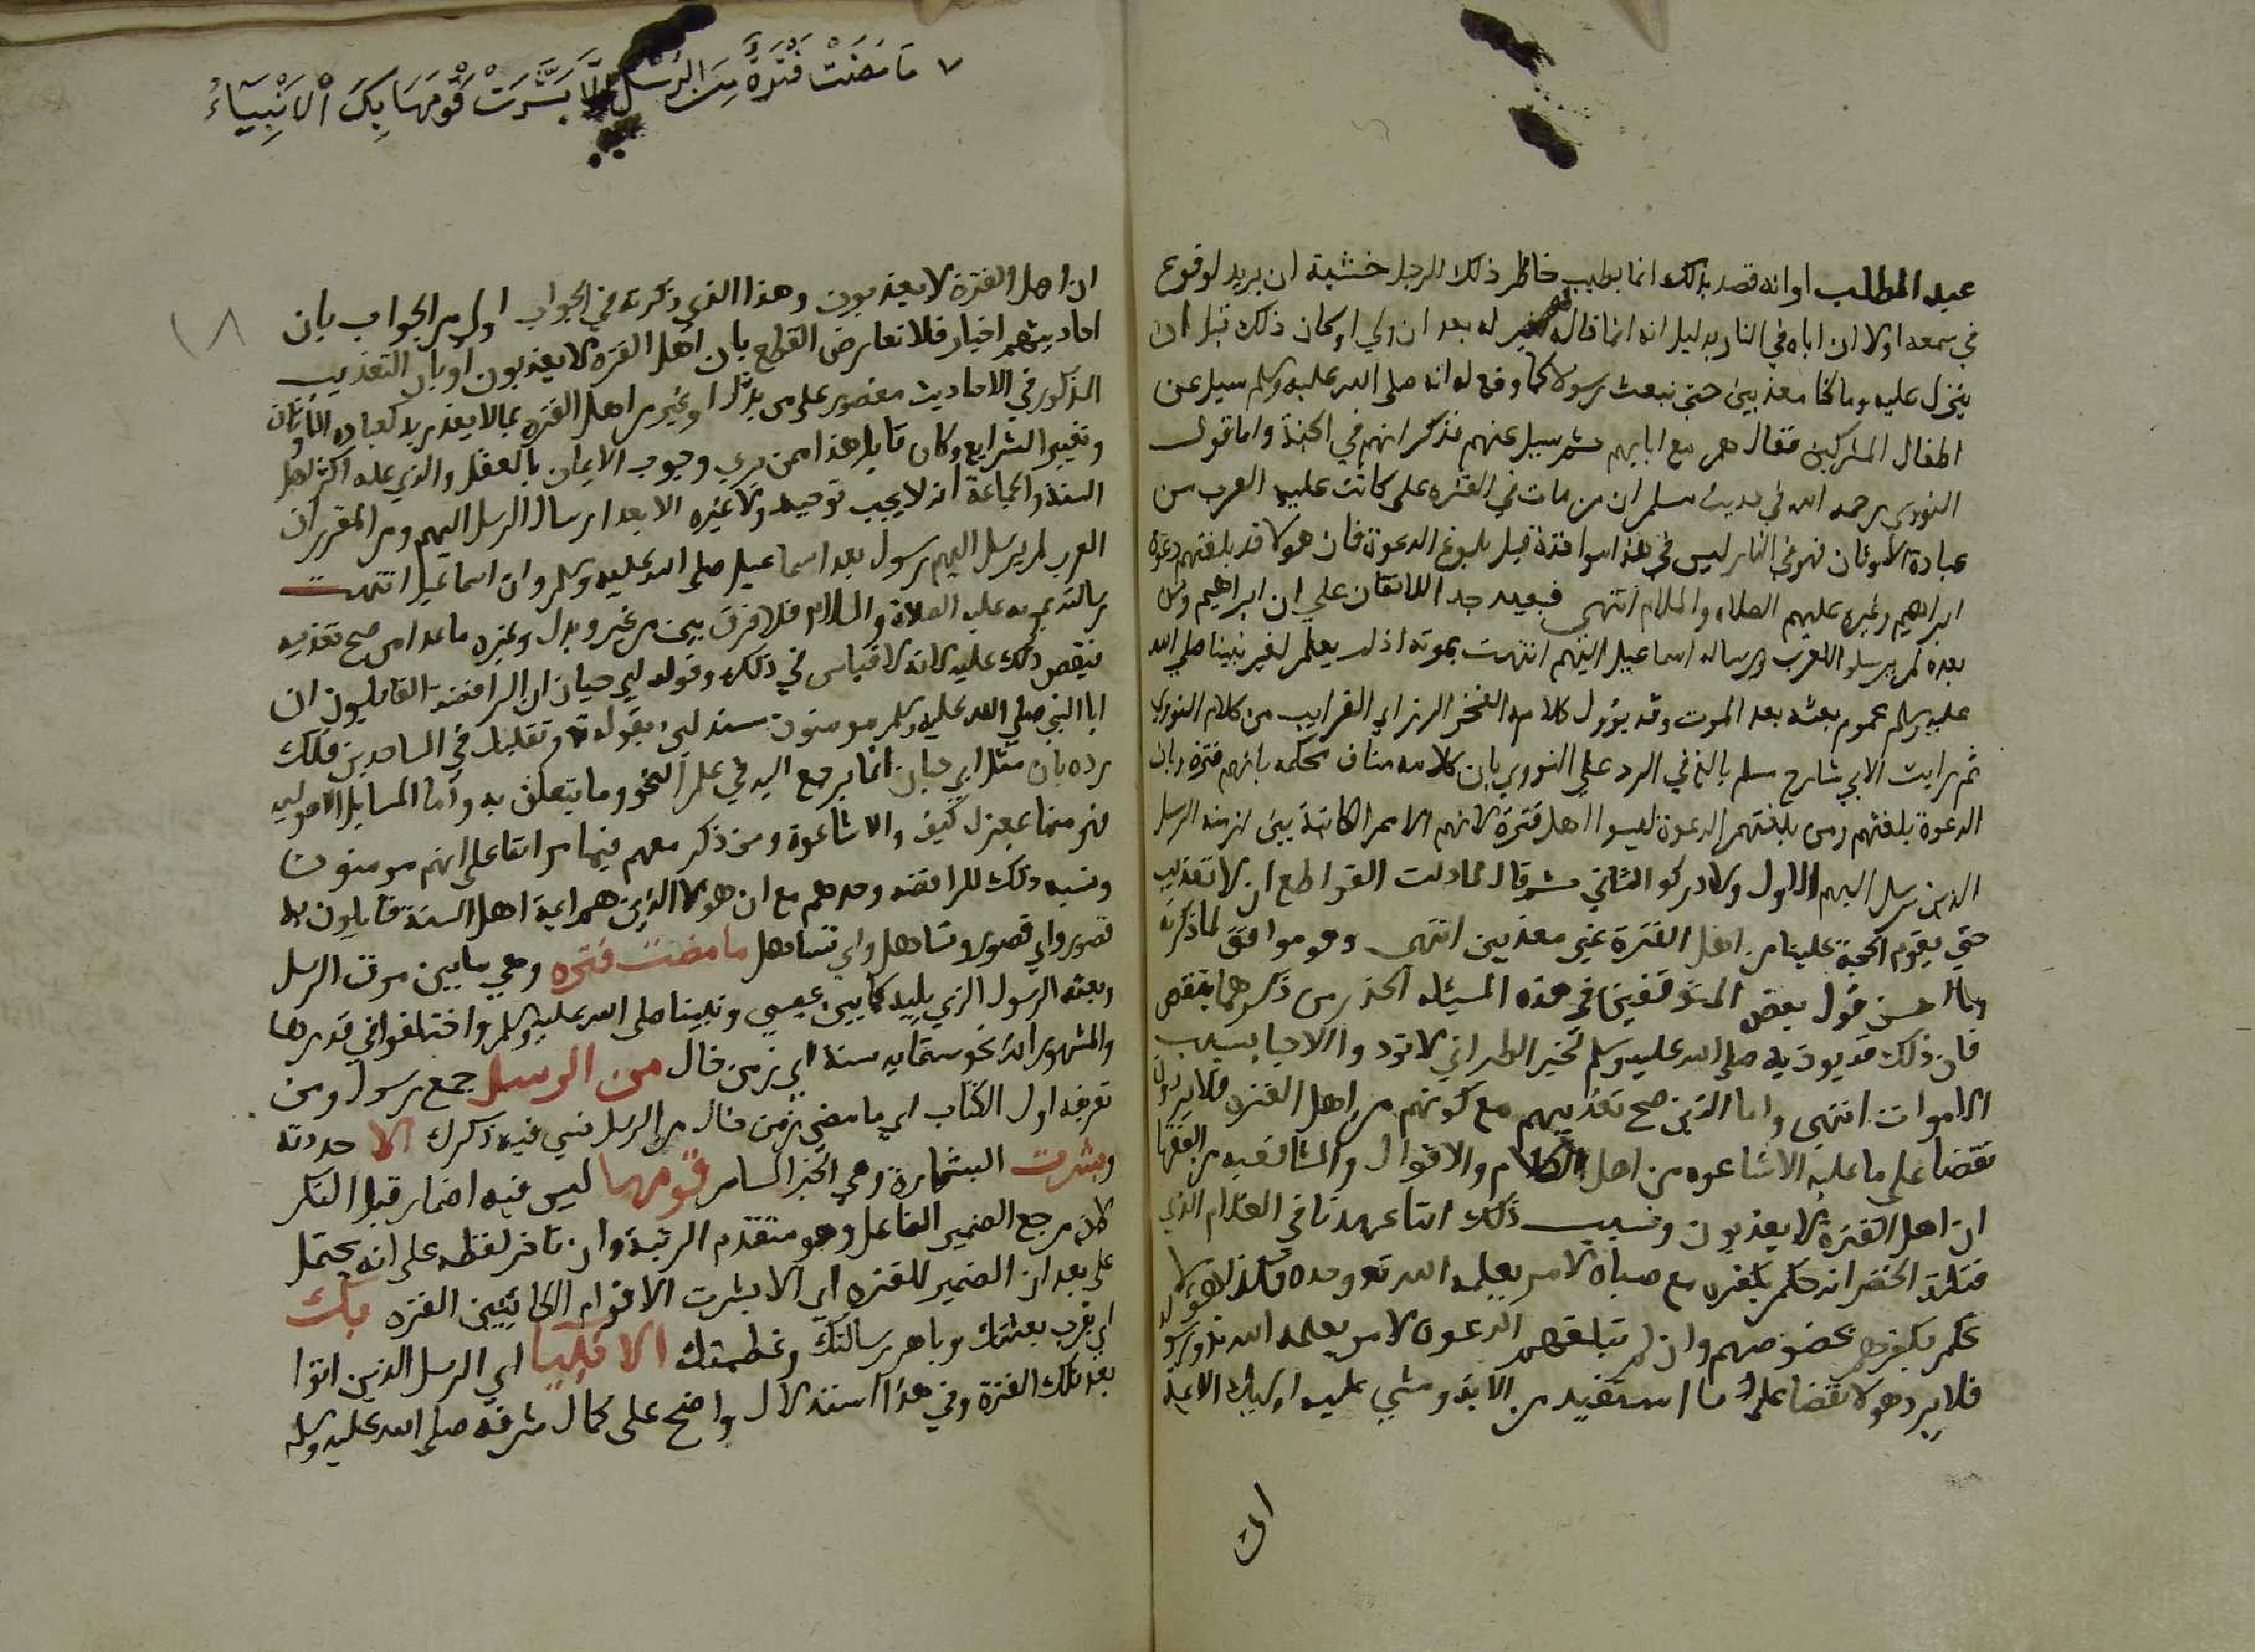 عبد المطلب او انه قصد بذلك انما يطيب خاطر ذلك الرجل خشية ان يرتد لوقوع
في سمعه اولا ان اباه في النار بدليل انه انما قاله له بعد ان ولي او كان ذلك قبل ان
ينزل عليه وما كنا معذبين حتى نبعث رسولا كما وقع له انه صلى الله عليه وسلم سيل عن
اطفال المشركين فقال هم مع ابايهم ثم سيل عنهم فذكر انهم في الجنة واما قول
النووي رحمه الله في حديث مسلم ان من مات في الفترة على ما كانت عليه العرب من
عبادة الاوثان فهو في النار ليس في هذا مواخذة قبل بلوغ الدعوة فان هولا قد بلغتهم دعوة
ابراهيم وغيره عليهم الصلاه والسلام انتهى فبعيد جدا للاتفاق علي ان ابراهيم ومن
بعده لم يرسلوا للعرب ورسالة اسماعيل اليهم انتهت بموته اذ لم يعلم لغير نبينا صلي الله
عليه وسلم عموم بعثه بعد الموت وقد يؤول كلامه الفخر الرازي القريب من كلام النووي
ثم رايت الابي شارح مسلم بالغ في الرد علي النووي بان كلامه مناف لحكمه بانهم فترة وبان
الدعوة بلغتهم ومن بلغتهم الدعوة ليسوا اهل فترة لانهم الامم الكاينة بين ازمنة الرسل
الذين لم يرسل اليهم الاول ولا ادركوا الثاني ثم قال لما دلت القواطع ان لا تعذيب
حتي يقوم الحجة علينا من اهل الفترة غير معذبين انتهى وهو موافق لما ذكرته
وما احسن قول بعض المتوقفين في هذه المسئله الحذر من ذكرهما بنقص
فان ذلك قد يوذيه صلى الله عليه وسلم لخبر الطبراني لا توذوا الاحيا بسبب
الاموات انتهى واما الذين صح تعذيبهم مع كونهم من اهل الفترة فلا يردون
نقضا على ما عليه الاشاعره من اهل الكلام والاقوال والشافعيه من الفقها
ان اهل الفترة لا يعذبون وسبب ذلك انا عهدنا في الغلام الذي
قتله الخضر انه حكم بكفره مع صباه لامر يعلمه الله تع وحده فكذا هولا
حكم بكفرهم بخصوصهم وان لم تبلغهم الدعوه لامر يعلمه الله تع ورسوله
فلا يرد هولا نقضا على ما استفيد من الاية ومشى عليه اوليك الايمة
ان
٧ مَا مَضَتْ فَتْرَةٌ مِنَ الرُّسْلِ إلَّا بَشَّرَتْ قَوْمَهَا بِكَ الْأَنْبِيَآءُ
١٨
ان اهل الفترة لا يعذبون وهذا الذي ذكرته في الجواب اولى من الجواب بان
احاديثهم اخبار فلا تعارض القطع بان اهل الفترة لا يعذبون او بان التعذيب
المذكور في الاحاديث مقصور على من بدل او غير من اهل الفترة بما لا يعذر به كعبادة الاوثان
وتغيير الشرايع وكان قايل هذا ممن يري وجوب الايمان بالعقل والذي عليه اكثر اهل
السنة والجماعة انه لا يجب توحيد ولا غيره الا بعد ارسال الرسل اليهم ومن المقرر ان
العرب لم يرسل اليهم رسول بعد اسماعيل صلى الله عليه وسلم وان اسماعيل انتهت
رسالته بموته عليه الصلاة والسلام فلا فرق بين من غير وبدل وغيره ما عدا من صح تعذيبه
فيقصر ذلك عليه لانه لا قياس في ذلك وقول ابي حيان ان الرافضة القايلون ان
ابا النبي صلي الله عليه وسلم مومنون مستدلين بقوله تع وتقلبك في الساجدين فلك
رده بان مثل ابي حيان انما يرجع اليه في علم النحو وما يتعلق به واما المسايل الاصوليه
فهو منها بمعزل كيف والاشاعرة ومن ذكر معهم فيما مر انفا على انهم مومنون
ونسبه ذلك للرافضه وحدهم مع ان هولا الذين هم ايمة اهل السنة قايلون به
قصور واي قصور وتساهل واي تساهل ما مضت فترة وهي ما بين موت الرسل
وبعثة الرسول الذي يليه كما بين عيسى ونبينا صلى الله عليه وسلم واختلفوا في قدرها
والمشهور انه نحو ستماية سنة اي زمن خال من الرسل جمع رسول ومن
تعريفه اول الكتاب اي ما مضى زمن خال من الرسل نسي فيه ذكرك الا جددته
وبشرت البشارة وهي الخبر السار قومها ليس فيه اضمار قبل الذكر
لان مرجع الضمير الفاعل وهو متقدم الرتبة وان تاخر لفظه على انه يحتمل
على بعد ان الضمير للفترة اي الا بشرت الاقوام الكاينين الفترة بك
اي بقرب بعثتك وباهر رسالتك وعظمتك الانبيا اي الرسل الذين اتوا
بعد تلك الفترة وفي هذا استدلال واضح على كمال شرفه صلى الله عليه وسلم